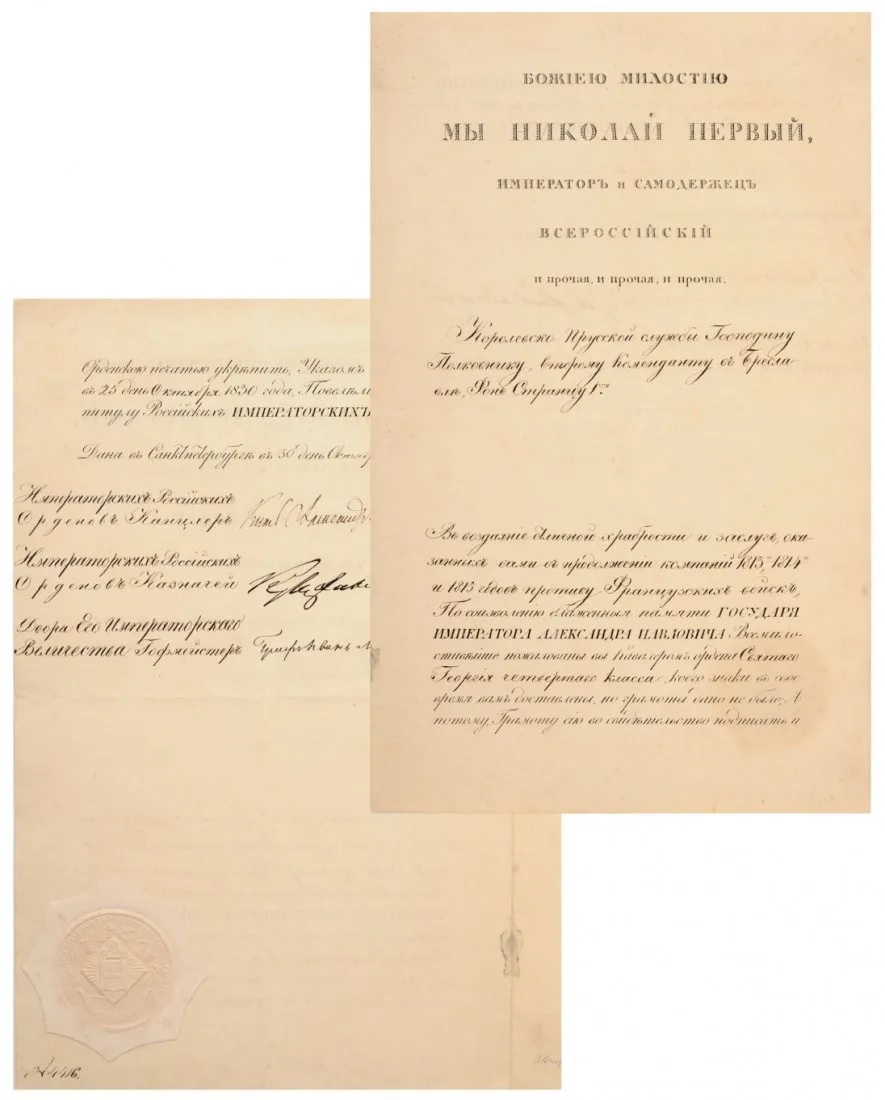 БОЖІЕЮ МИЛОСТІЮ
МЫ НИКОЛАЙ ПЕРВЫЙ,
ИМПЕРАТОРЪ и САМОДЕРЖЕЦЪ
ВСЕРОССІЙСКІЙ
и прочая, и прочая, и прочая.
Королевско Прусской службы Господину
Полковнику, второму Коменданту въ Бресла-
влѣ, Фонъ Странцу 1му
Въ воздаяніе отличной храбрости и заслугъ, ока-
занныхъ вами въ продолженіи компаній 1813, 1814
и 1815 годовъ противу Французскихъ войскъ,
По соизволенію блаженныя памяти ГОСУДАРЯ
ИМПЕРАТОРА АЛЕКСАНДРА ПАВЛОВИЧА Всемило-
стивѣйше пожалованы вы Кавалеромъ ордена Святаго
Георгія четвертаго класса, коего знаки въ свое
время вамъ доставлены, но грамоты дано не было, А
потому, Грамоту сію во свидѣтельство подписать и
Орденскою печатью укрѣпить, Указомъ
въ 25 день Октября 1830 года, Повелѣли
питулу Россійскихъ ИМПЕРАТОРСКИХЪ
Дана въ Санктпетербургѣ въ 30 день Октяб
Императорскихъ Россійскихъ
Орденовъ Канцлеръ Князь Александръ
Императорскихъ Россійскихъ
Орденовъ Казначей
Двора Его Императорскаго
Величества Гофмейстеръ Графъ Иванъ
№ 4416.